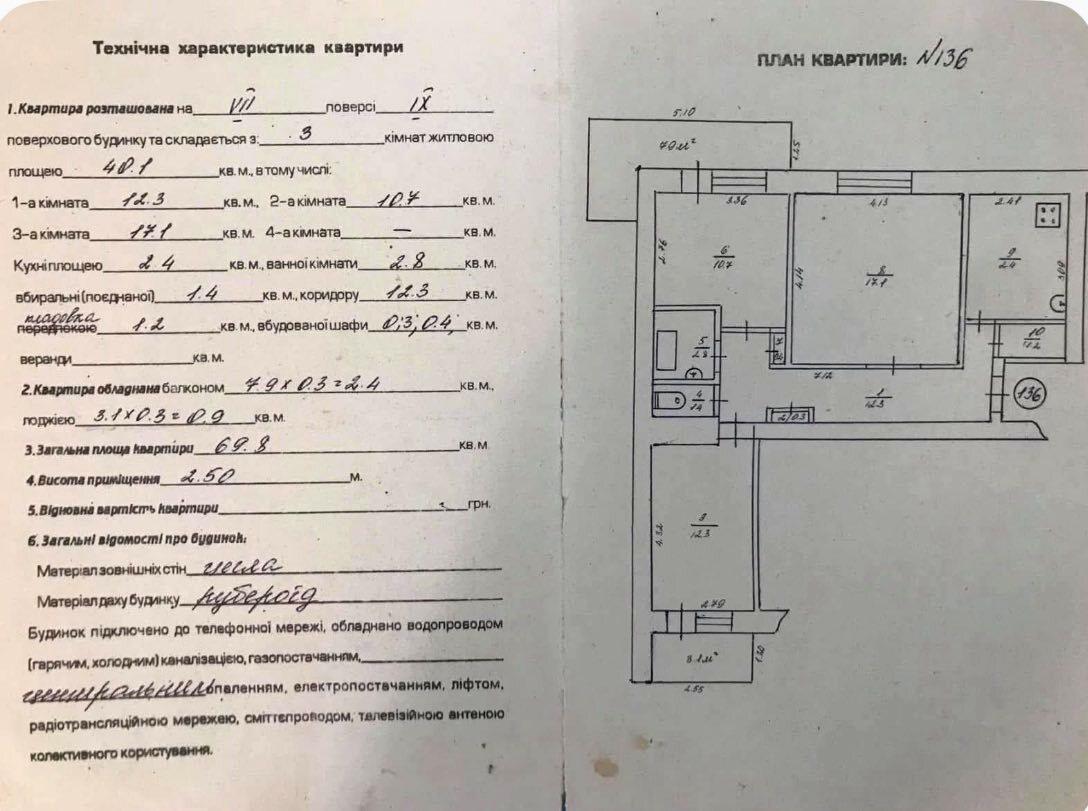 Технічна характеристика квартири
1. Квартира розташована на VII поверсі IX
поверхового будинку та складається з: 3 кімнат житловою
площею 40.1 кв. м., в тому числі:
1-а кімната 12.3 кв. м., 2-а кімната 10.7 кв. м.
3-а кімната 17.1 кв. м. 4-а кімната — кв. м.
Кухні площею 2.4 кв. м., ванної кімнати 2.8 кв. м.
вбиральні (поєднаної) 1.4 кв. м., коридору 12.3 кв. м.
кладовка
1.2 кв. м., вбудованої шафи 0,3; 0.4; кв. м.
веранди кв. м.
2. Квартира обладнана балконом 7.9 х 0.3 = 2.4 кв. м.,
лоджією 3.1 х 0.3 = 0.9 кв. м.
3. Загальна площа квартири 69.8 кв. м.
4. Висота приміщення 2.50 м.
5. Відновна вартість квартири грн.
6. Загальні відомості про будинок:
Матеріал зовнішніх стін
Матеріал даху будинку рубероїд
Будинок підключено до телефонної мережі, обладнано водопроводом
(гарячим, холодним) каналізацією, газопостачанням,
центральним опаленням, електропостачанням, ліфтом,
радіотрансляційною мережею, сміттєпроводом, телевізійною антеною
колективного користування.
ПЛАН КВАРТИРИ: №136
5.10
7.9 м²
1.25
3.36
4.13
2.41
2.76
6
10.7
4.14
8
17.1
9
2.4
5
2.8
10
1.2
7.12
4
1.4
1
12.3
136
2/0.3
4.32
3
12.3
2.79
3.1 м²
1.30
2.55